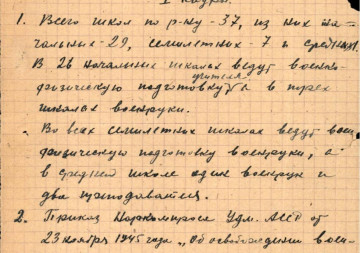 1. Всего школ по р-ну - 37, из них на-
чальных - 29, семилетних - 7 и средних 1.
В 26 начальных школах ведут военно-
учителя
физическую подготовку, а в трех
школах военруки.
Во всех семилетних школах ведут воен
физическую подготовку военруки, а
в средней школе один военрук и
два преподавателя.
2. Приказ Наркомпроса Удм. АССР от
23 ноября 1945 года „Об освобождении воен-